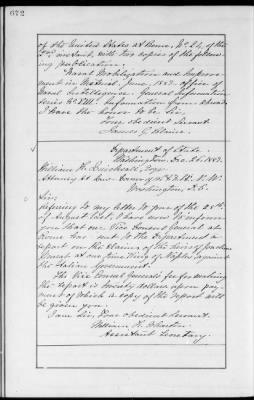 672
of the United States at Rome, No. 24, of the
inst, with two copies of the follow-
ing publication.
Naval Mobilization and Improve-
ment in Materiel, June, 1889. Office of
Naval Intelligence. General Information
Series No. VIII. Information from abroad.
I have the honor to be Sir
Your obedient Servant
James G. Blaine.
Department of State
Washington, Dec. 26, 1889.
William H. Esqre
Attorney at Law Corner of & D St. N.W.
Washington, D.C.
Sir:
Referring to my letter to you of the 28th
of August last, I have now to inform
you that our Vice Consul General at
Rome has sent to the Department a
report on the claims of the heirs of Joachim
Murat at one time King of Naples against
the Italian Government.
The Vice Consul General's fee for making
the report is twenty dollars upon pay-
ment of which a copy of the report will
be given you.
I am Sir, Your obedient servant.
William F. Wharton
Assistant Secretary.